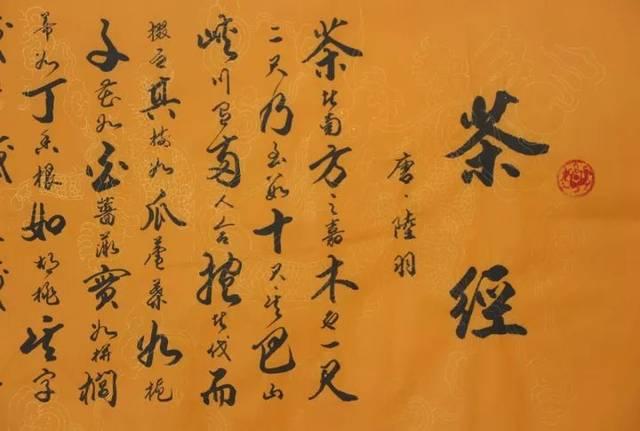 茶經
唐、陸羽
茶者南方之嘉木也一尺
二尺乃至數十尺其巴山
峽川有兩人合抱者伐而
掇之其樹如瓜蘆葉如梔
子花如白薔薇實如栟櫚
蒂如丁香根如胡桃其字